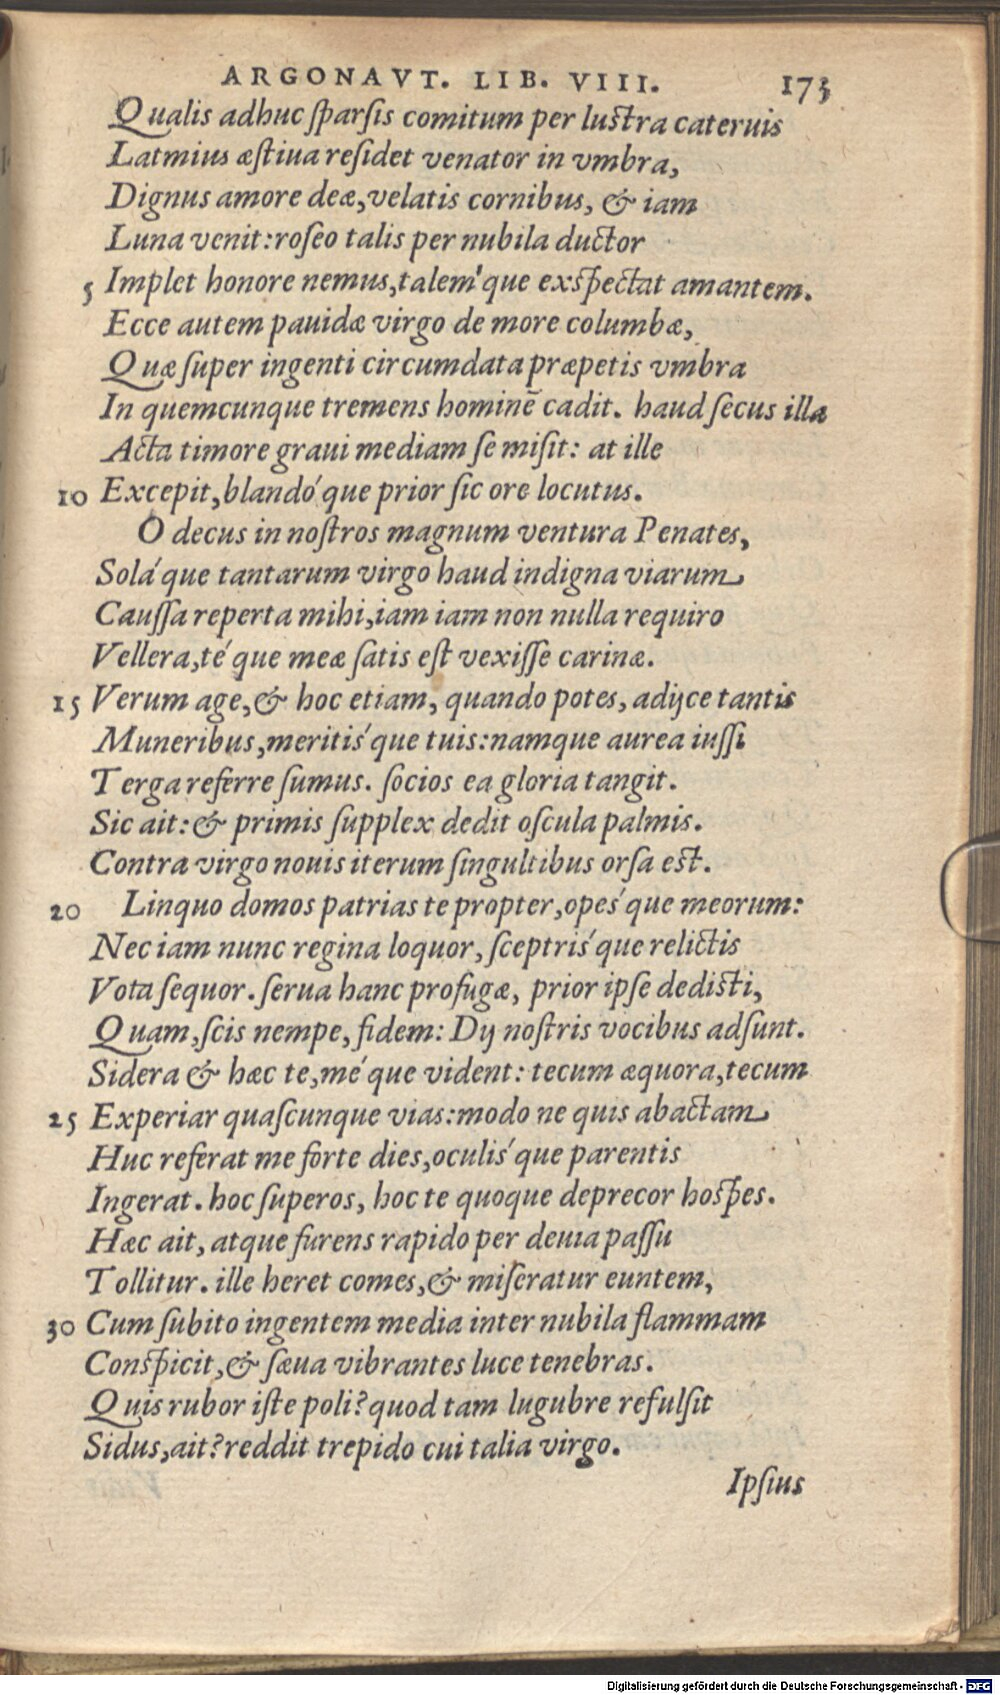 ARGONAVT. LIB. VIII. 173
Qualis adhuc ſparſis comitum per luſtra cateruis
Latmius æſtiua reſidet venator in vmbra,
Dignus amore deæ, velatis cornibus, & iam
Luna venit: roſeo talis per nubila ductor
5 Implet honore nemus, talem'que exſpectat amantem.
Ecce autem pauidæ virgo de more columbæ,
Quæ ſuper ingenti circumdata præpetis vmbra
In quemcunque tremens hominē cadit. haud ſecus illa
Acta timore graui mediam ſe miſit: at ille
10 Excepit, blandó'que prior ſic ore locutus.
O decus in noſtros magnum ventura Penates,
Solá'que tantarum virgo haud indigna viarum
Cauſſa reperta mihi, iam iam non nulla requiro
Vellera, té'que meæ ſatis eſt vexiſſe carinæ.
15 Verum age, & hoc etiam, quando potes, adijce tantis
Muneribus, meritiś'que tuis: namque aurea iuſſi
Terga referre ſumus. ſocios ea gloria tangit.
Sic ait: & primis ſupplex dedit oſcula palmis.
Contra virgo nouis iterum ſingultibus orſa eſt.
20 Linquo domos patrias te propter, opeś'que meorum:
Nec iam nunc regina loquor, ſceptriś'que relictis
Vota ſequor. ſerua hanc profugæ, prior ipſe dediſti,
Quam, ſcis nempe, fidem: Dij noſtris vocibus adſunt.
Sidera & hæc te, mé'que vident: tecum æquora, tecum
25 Experiar quaſcunque vias: modo ne quis abactam
Huc referat me forte dies, oculiś'que parentis
Ingerat. hoc ſuperos, hoc te quoque deprecor hoſpes.
Hæc ait, atque furens rapido per deuia paſſu
Tollitur. ille heret comes, & miſeratur euntem,
30 Cum ſubito ingentem media inter nubila flammam
Conſpicit, & ſæua vibrantes luce tenebras.
Quis rubor iſte poli? quod tam lugubre refulſit
Sidus, ait? reddit trepido cui talia virgo.
Ipſius
Digitalisierung gefördert durch die Deutsche Forschungsgemeinschaft - DFG